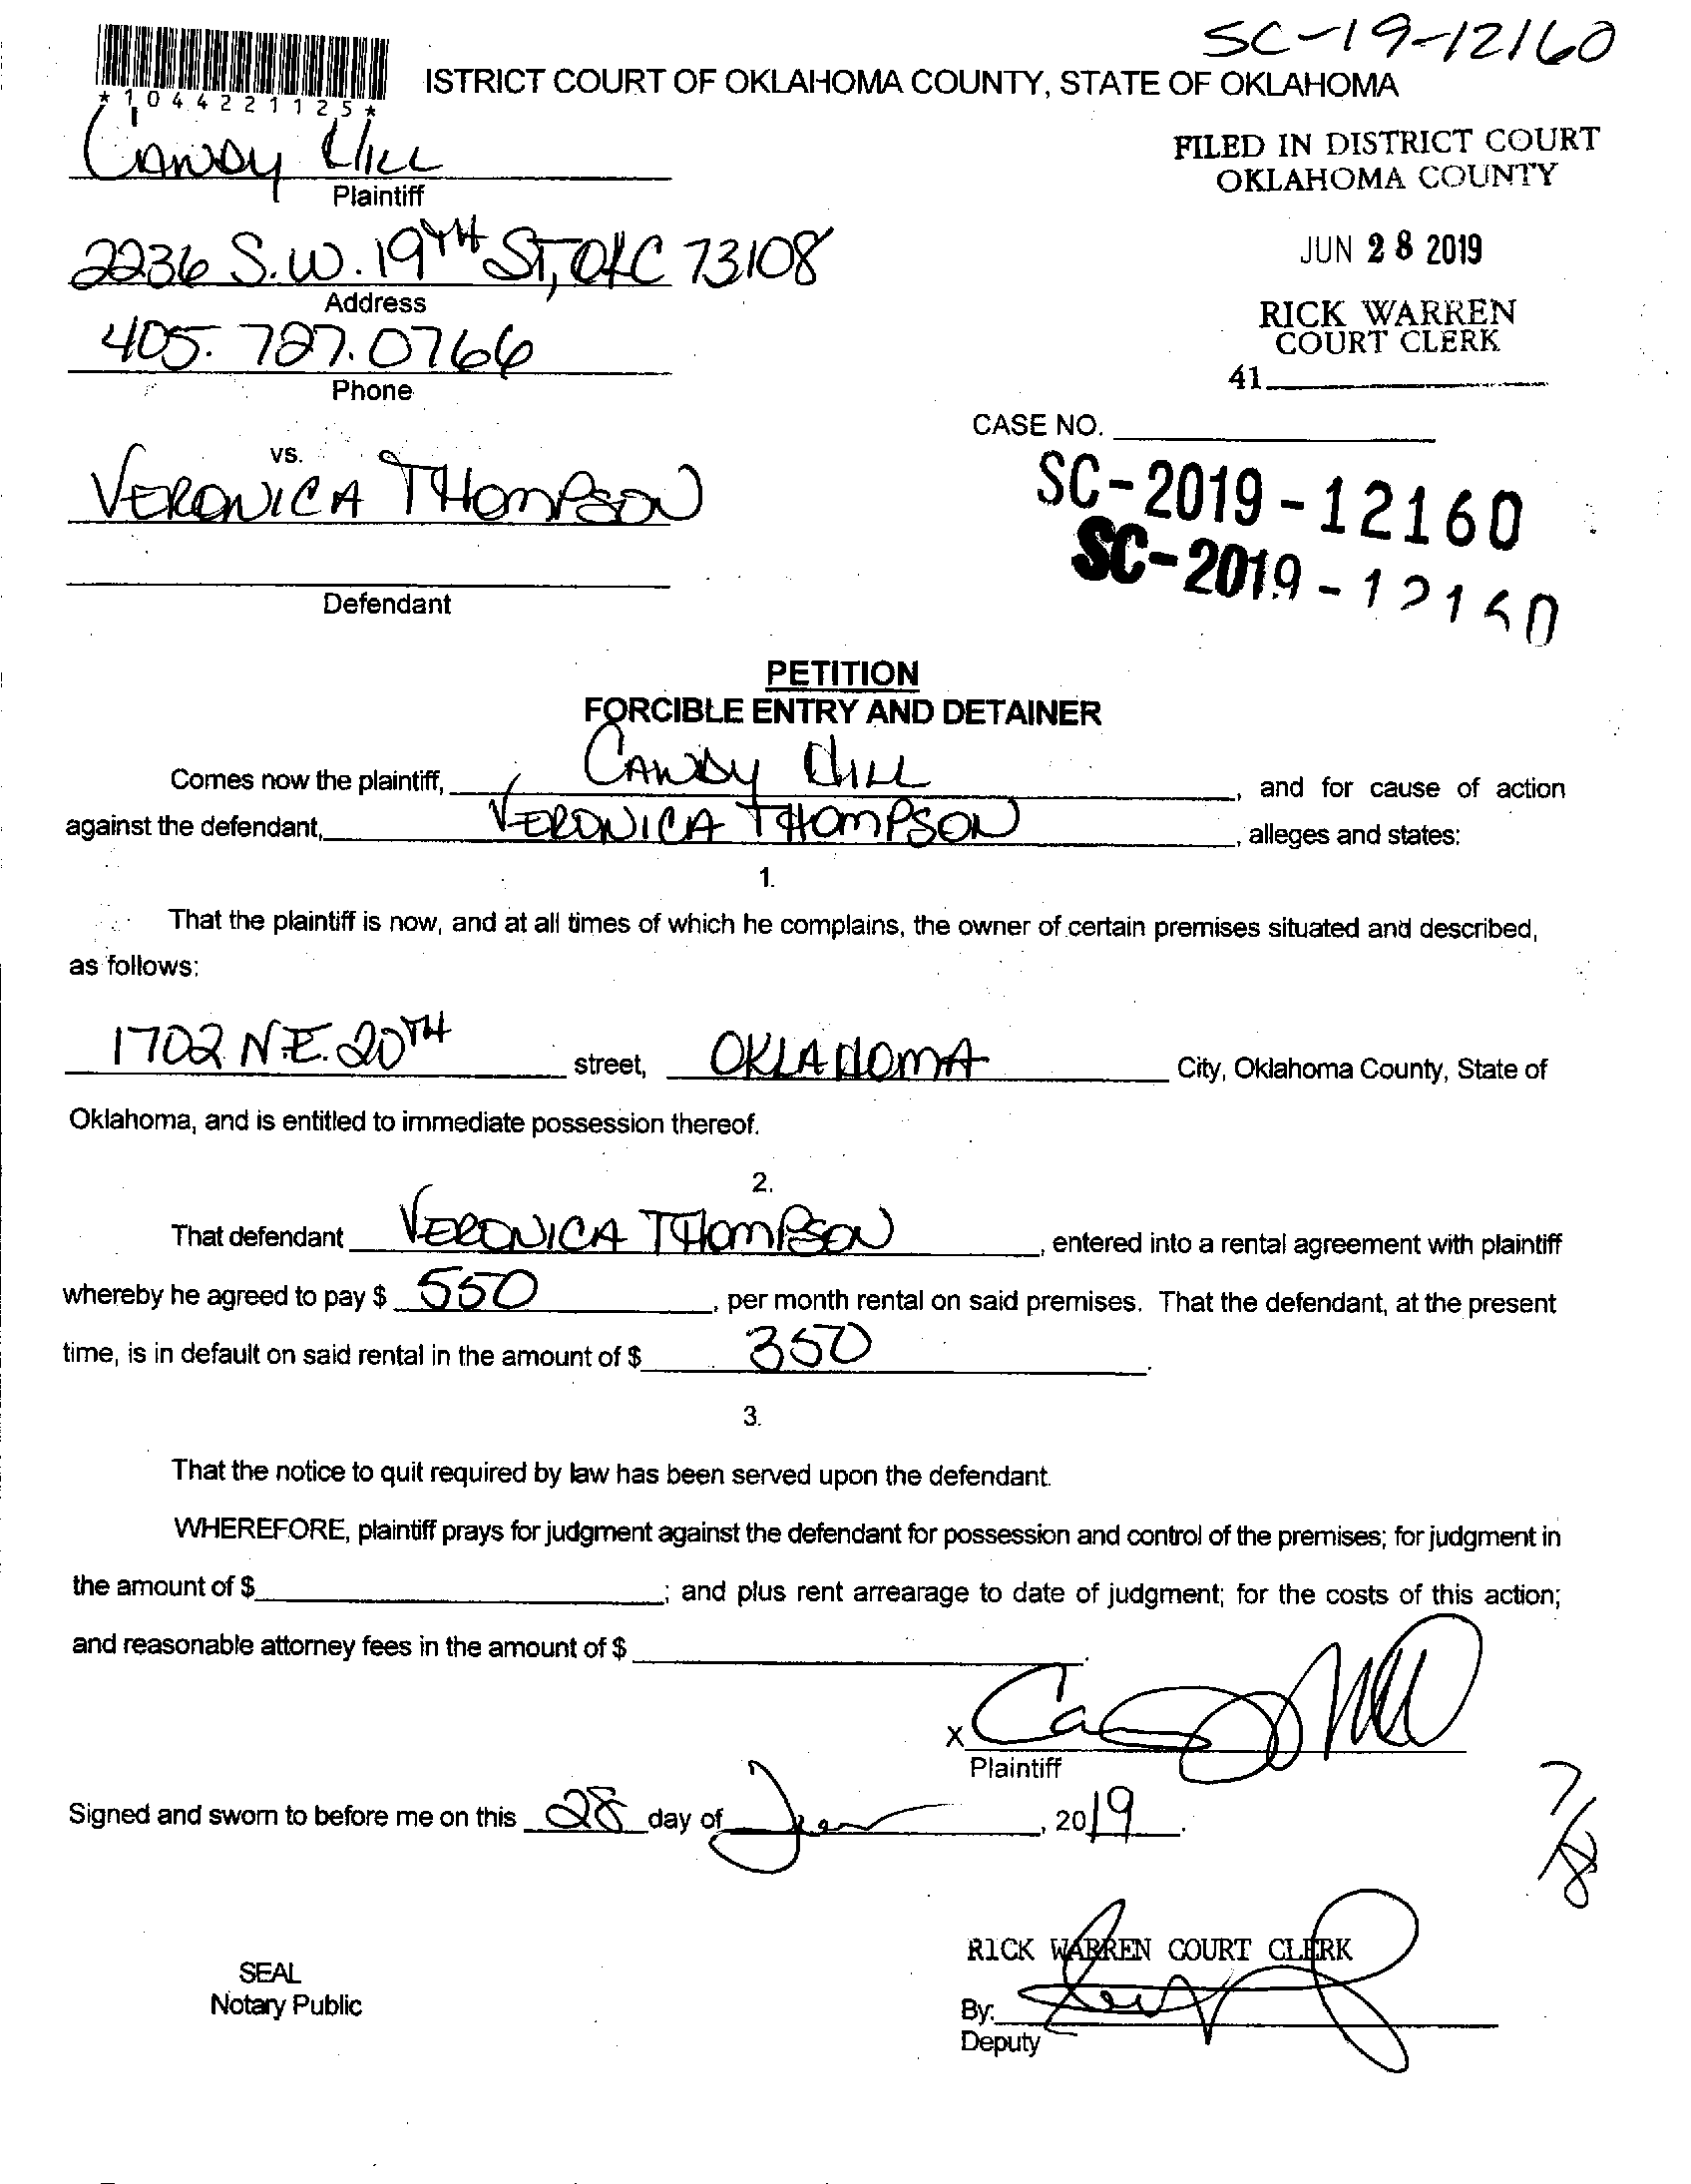 SC-19-12160
*1044221125*
ISTRICT COURT OF OKLAHOMA COUNTY, STATE OF OKLAHOMA
CANDY HILL
Plaintiff
FILED IN DISTRICT COURT
OKLAHOMA COUNTY
2236 S.W. 19TH ST, OKC 73108
Address
JUN 28 2019
405.727.0766
Phone
RICK WARREN
COURT CLERK
41
CASE NO.
vs.
VERONICA THOMPSON
SC-2019-12160
SC-2019-12160
Defendant
PETITION
FORCIBLE ENTRY AND DETAINER
Comes now the plaintiff, CANDY HILL, and for cause of action
against the defendant, VERONICA THOMPSON, alleges and states:
1.
That the plaintiff is now, and at all times of which he complains, the owner of certain premises situated and described,
as follows:
1702 N.E. 20TH street, OKLAHOMA City, Oklahoma County, State of
Oklahoma, and is entitled to immediate possession thereof.
2.
That defendant VERONICA THOMPSON, entered into a rental agreement with plaintiff
whereby he agreed to pay $ 550, per month rental on said premises. That the defendant, at the present
time, is in default on said rental in the amount of $ 350.
3.
That the notice to quit required by law has been served upon the defendant.
WHEREFORE, plaintiff prays for judgment against the defendant for possession and control of the premises; for judgment in
the amount of $ ; and plus rent arrearage to date of judgment; for the costs of this action;
and reasonable attorney fees in the amount of $ .
X Candy Hill
Plaintiff
Signed and sworn to before me on this 28 day of June, 2019.
7/18
RICK WARREN COURT CLERK
SEAL
Notary Public
By:
Deputy